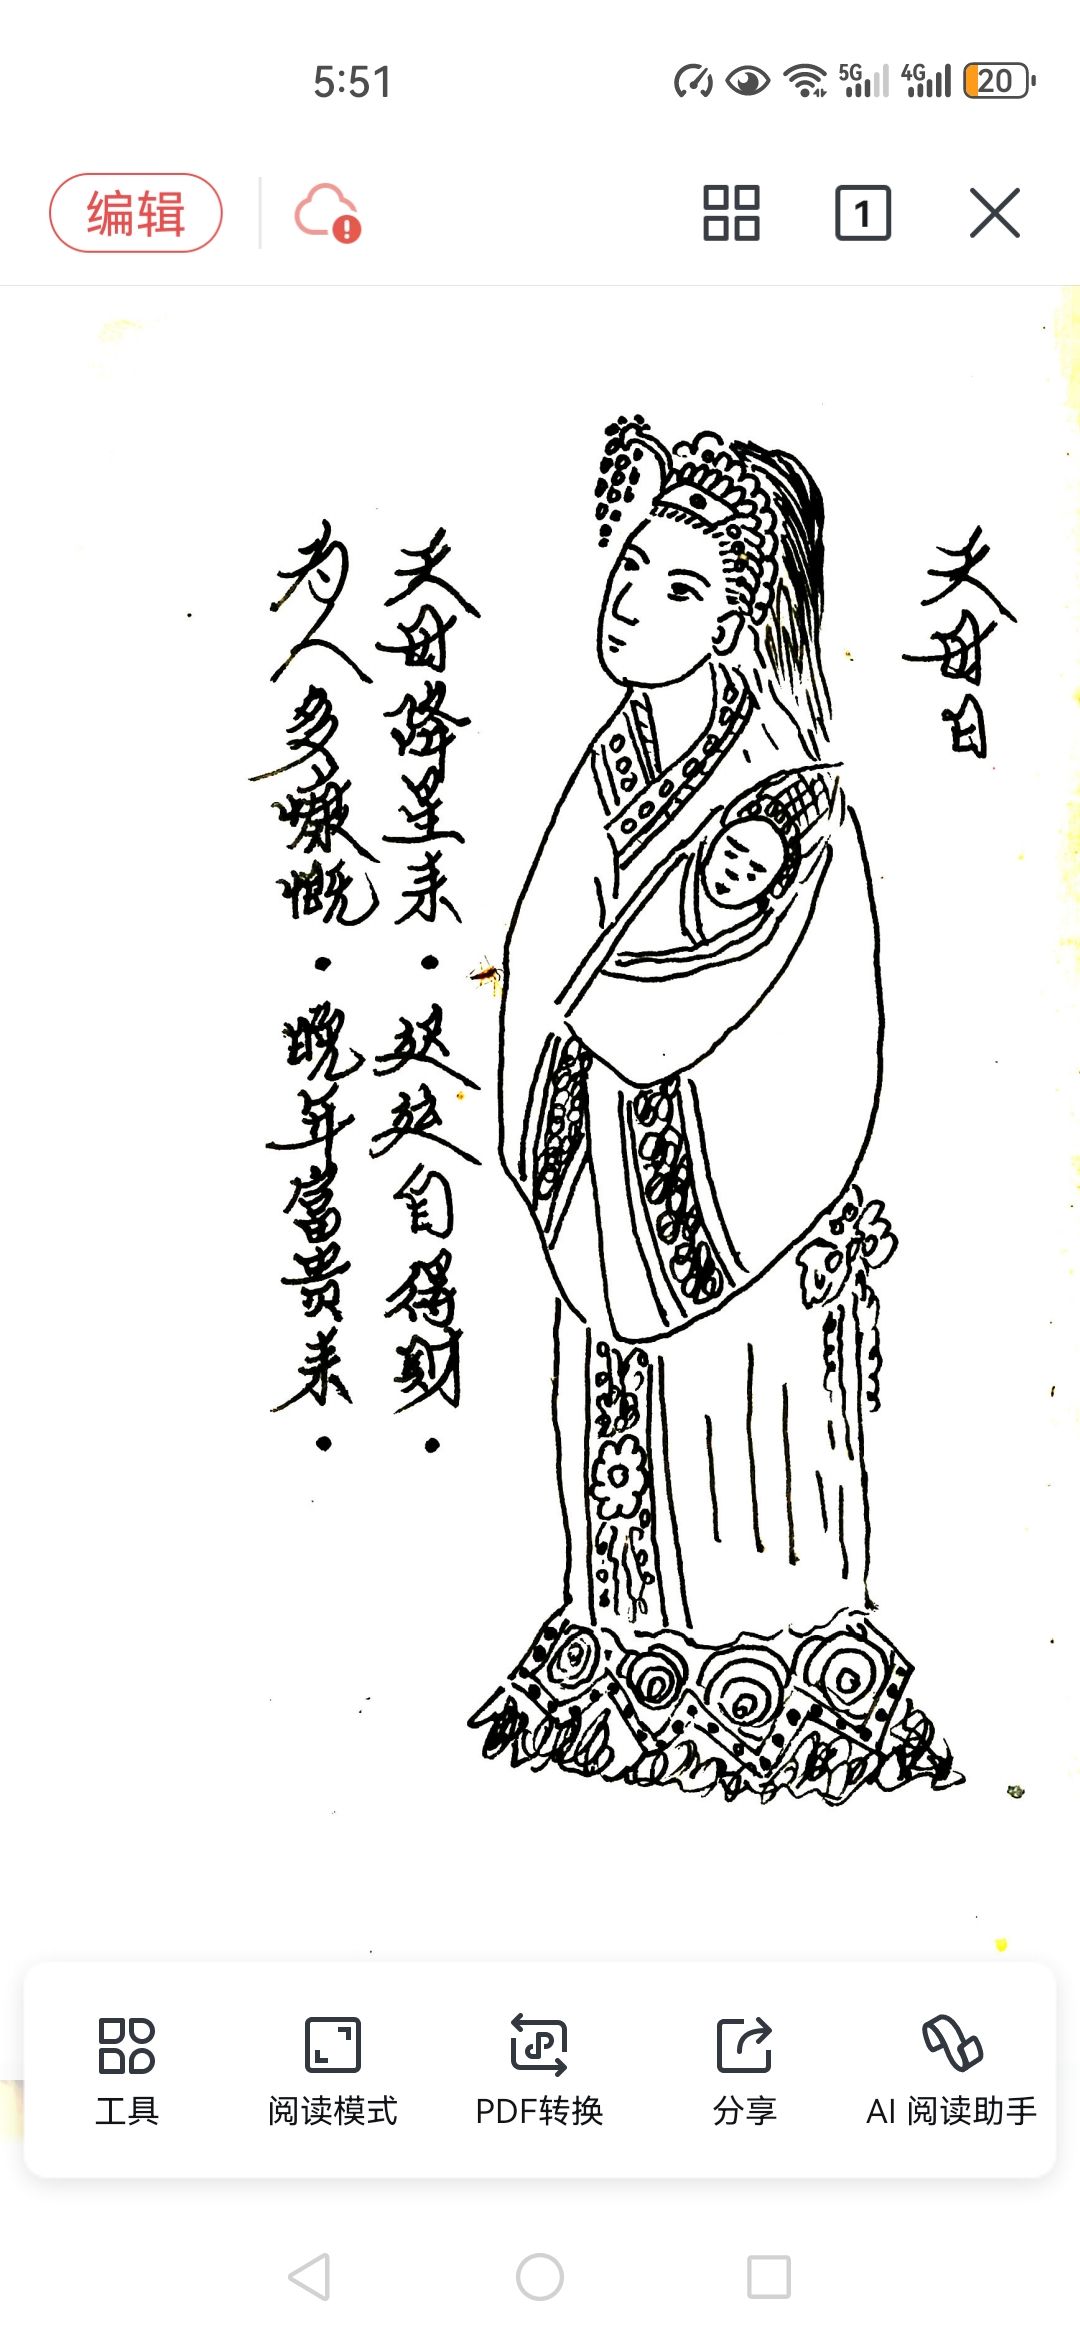 5:51
5G 4G 20
编辑
1
天母日
天母降星来·处处自得财·
为人多慷慨·晚年富贵来·
工具 阅读模式 PDF转换 分享 AI 阅读助手